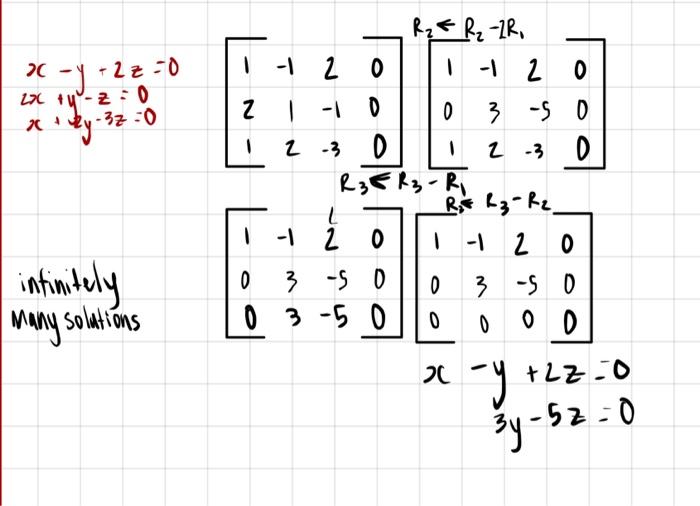 x - y + 2z = 0
2x + y - z = 0
x + 2y - 3z = 0
1 -1 2 0
2 1 -1 0
1 2 -3 0
R₂ ← R₂ - 2R₁
1 -1 2 0
0 3 -5 0
1 2 -3 0
R₃ ← R₃ - R₁
1 -1 2 0
0 3 -5 0
0 3 -5 0
R₃ ← R₃ - R₂
1 -1 2 0
0 3 -5 0
0 0 0 0
infinitely
many solutions
x - y + 2z = 0
3y - 5z = 0